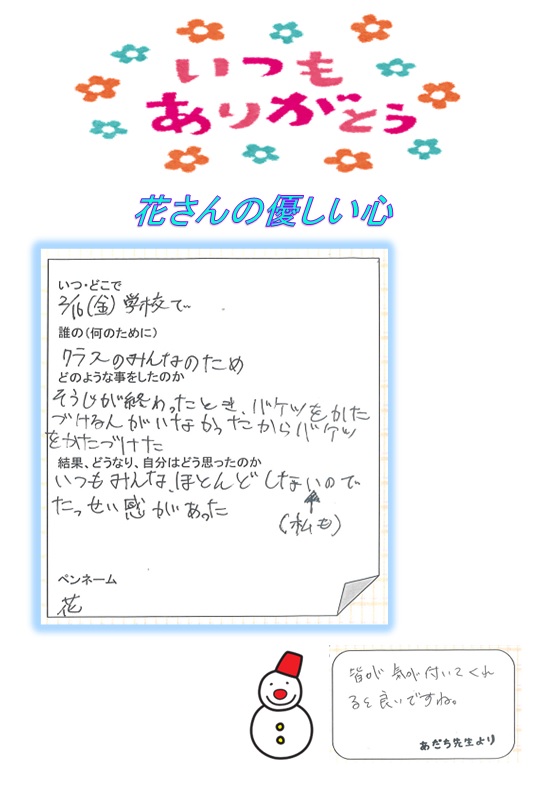 いつも
ありがとう
花さんの優しい心
いつ・どこで
2/16(金)学校で
誰の(何のために)
クラスのみんなのため
どのような事をしたのか
そうじが終わったとき、バケツをかた
づける人がいなかったからバケツ
をかたづけた
結果、どうなり、自分はどう思ったのか
いつもみんな、ほとんどしないので
たっせい感があった
(私も)
ペンネーム
花
皆が気が付いてくれ
ると良いですね。
あだち先生より